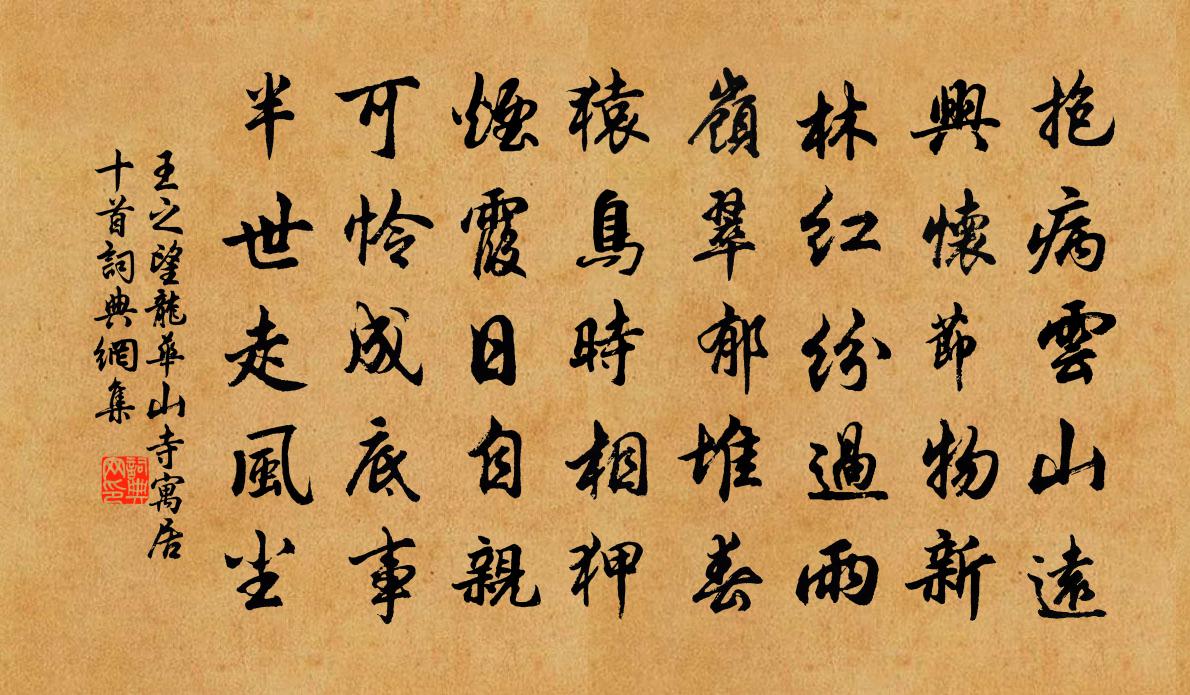 抱病雲山遠
興懷節物新
林紅紛過雨
嶺翠郁堆春
猿鳥時相狎
煙霞日自親
可怜成底事
半世走風尘
王之望龍華山寺寓居
十首詞典網集
詞典網印